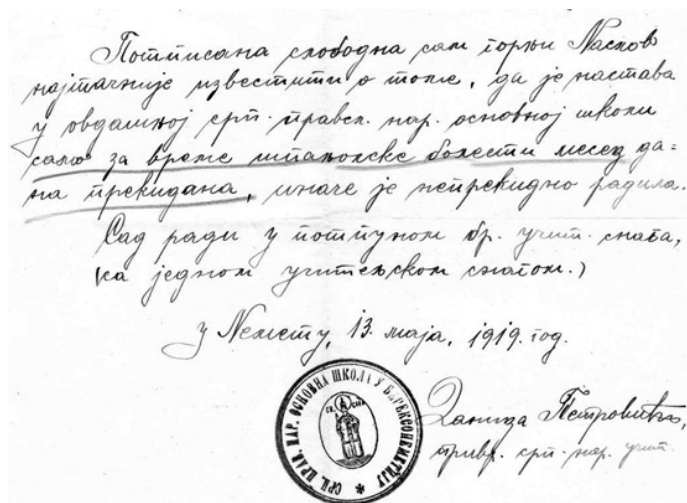 Потписана слободна сам горњи Наслов
најтачније известити о томе, да је настава
у овдашњој срп. правсл. нар. основној школи
само за време шпањолске болести месец да=
на прекидана, иначе је непрекидно радила.
Сад ради у потпуном бр. учит. снага,
(са једном учитељском снагом.)
У Немету, 13. маја, 1919. год.
СРП. ПРАВ. НАР. ОСНОВНА ШКОЛА У
Даница Петровићь,
привр. срп. нар. учит.